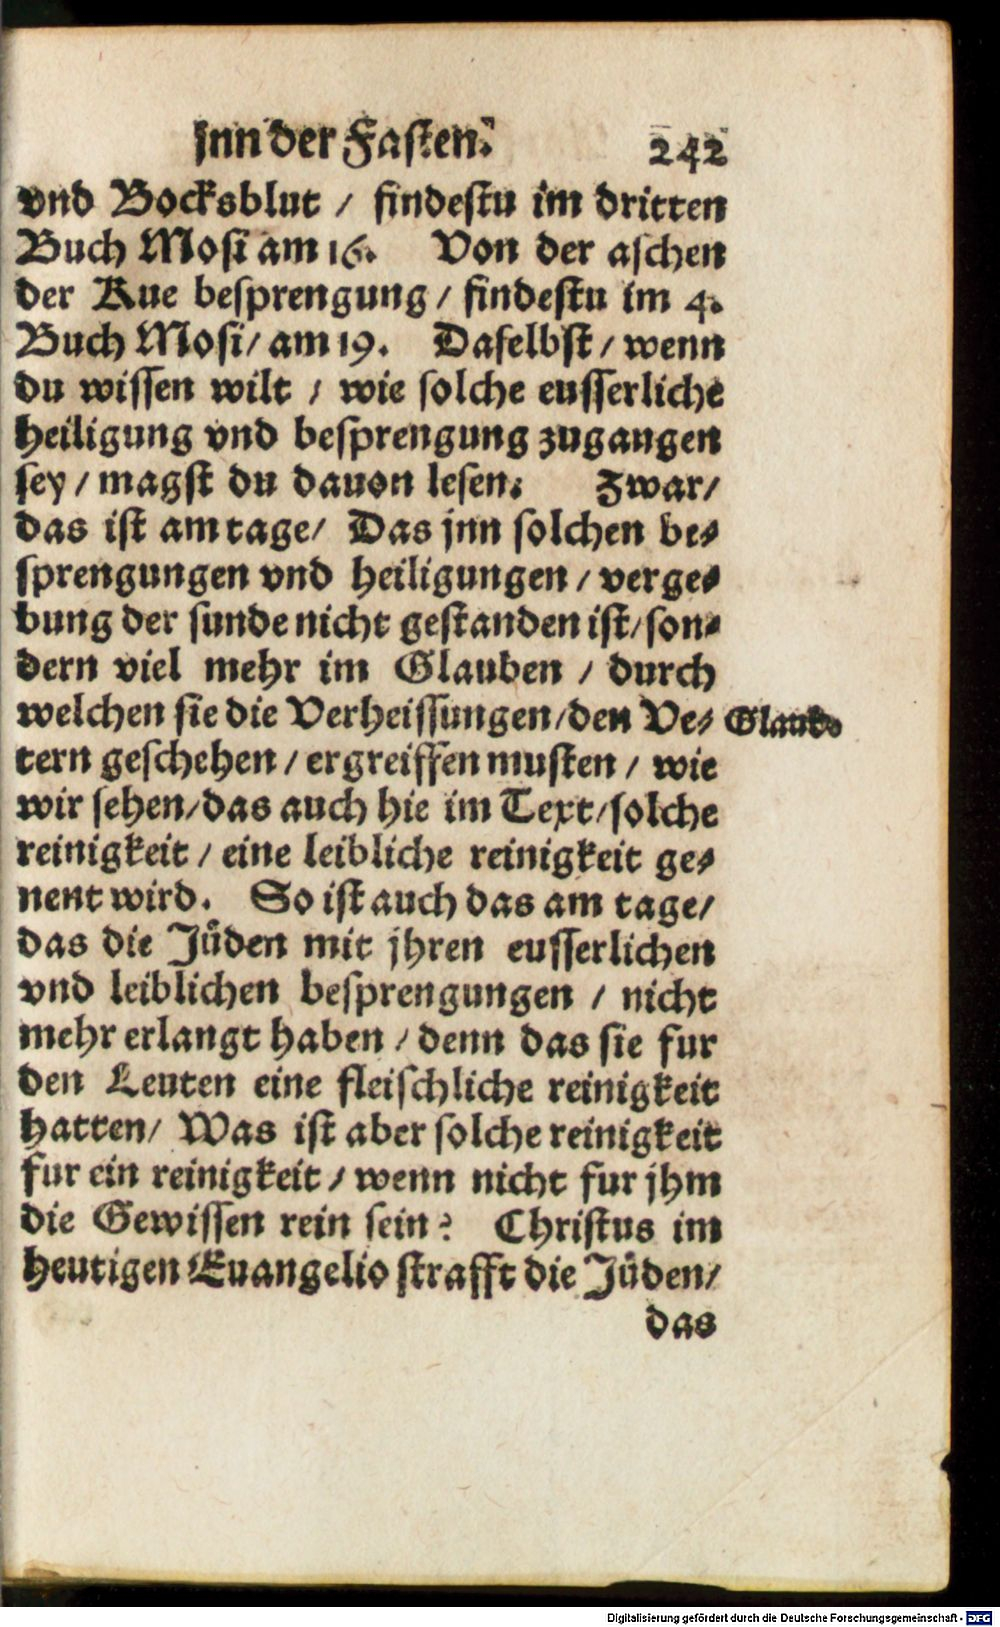 Inn der Fasten. 242
vnd Bocksblut / findestu im dritten
Buch Mosi am 16. Von der aschen
der Kue besprengung / findestu im 4.
Buch Mosi / am 19. Daselbst / wenn
du wissen wilt / wie solche eusserliche
heiligung vnd besprengung zugangen
sey / magst du dauon lesen. Zwar /
das ist am tage / Das jnn solchen be⸗
sprengungen vnd heiligungen / verge⸗
bung der sunde nicht gestanden ist / son⸗
dern viel mehr im Glauben / durch
welchen sie die Verheissungen / den Ve⸗ Glaub.
tern geschehen / ergreiffen musten / wie
wir sehen / das auch hie im Text / solche
reinigkeit / eine leibliche reinigkeit ge⸗
nent wird. So ist auch das am tage /
das die Jüden mit jhren eusserlichen
vnd leiblichen besprengungen / nicht
mehr erlangt haben / denn das sie fur
den Leuten eine fleischliche reinigkeit
hatten / Was ist aber solche reinigkeit
fur ein reinigkeit / wenn nicht fur jhm
die Gewissen rein sein? Christus im
heutigen Euangelio strafft die Jüden /
das
Digitalisierung gefördert durch die Deutsche Forschungsgemeinschaft - DFG